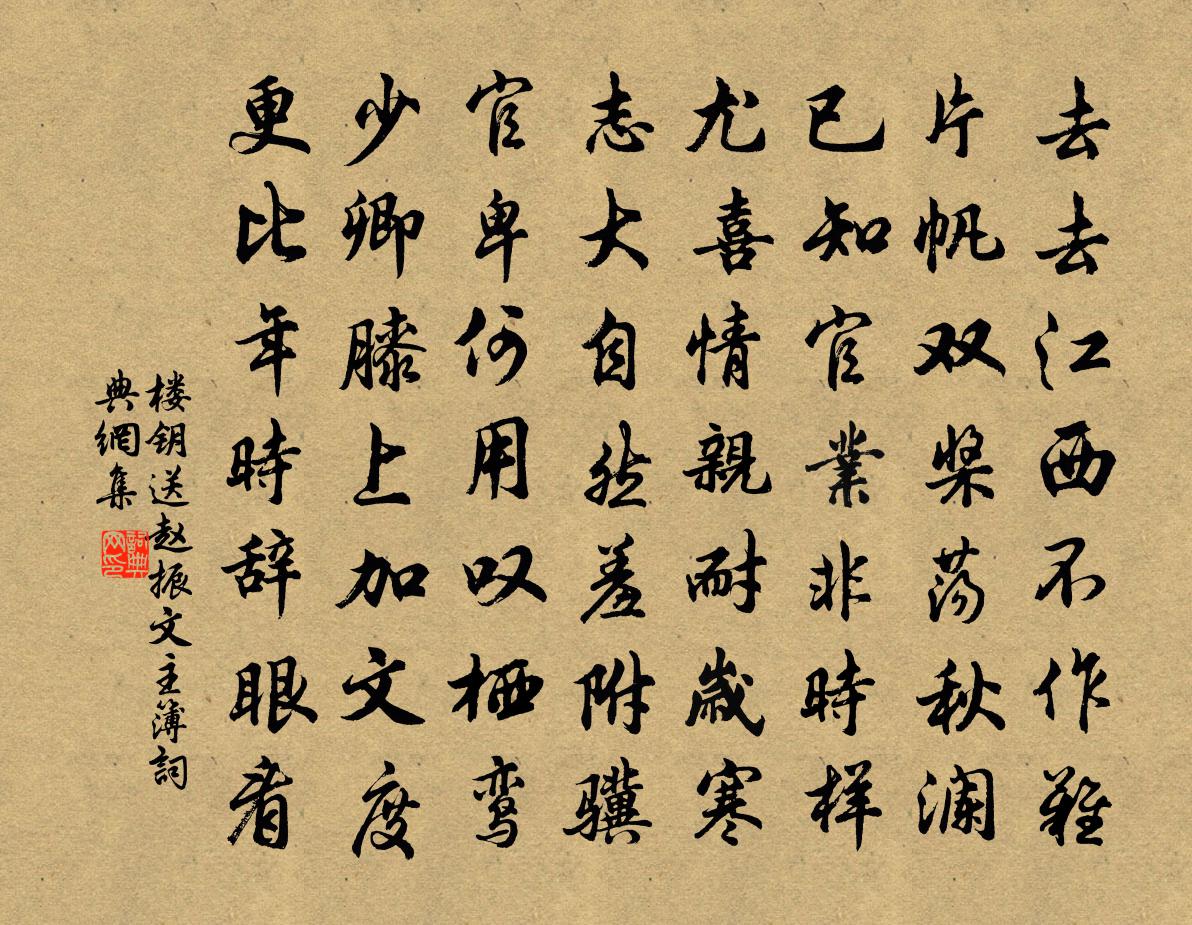 去去江西不作難
片帆双桨荡秋澜
已知官業非時样
尤喜情親耐歲寒
志大自然羞附骥
官卑何用叹栖鸾
少卿膝上加文度
更比年時辞眼看
楼钥送赵振文主簿詞
典網集
詞典网印